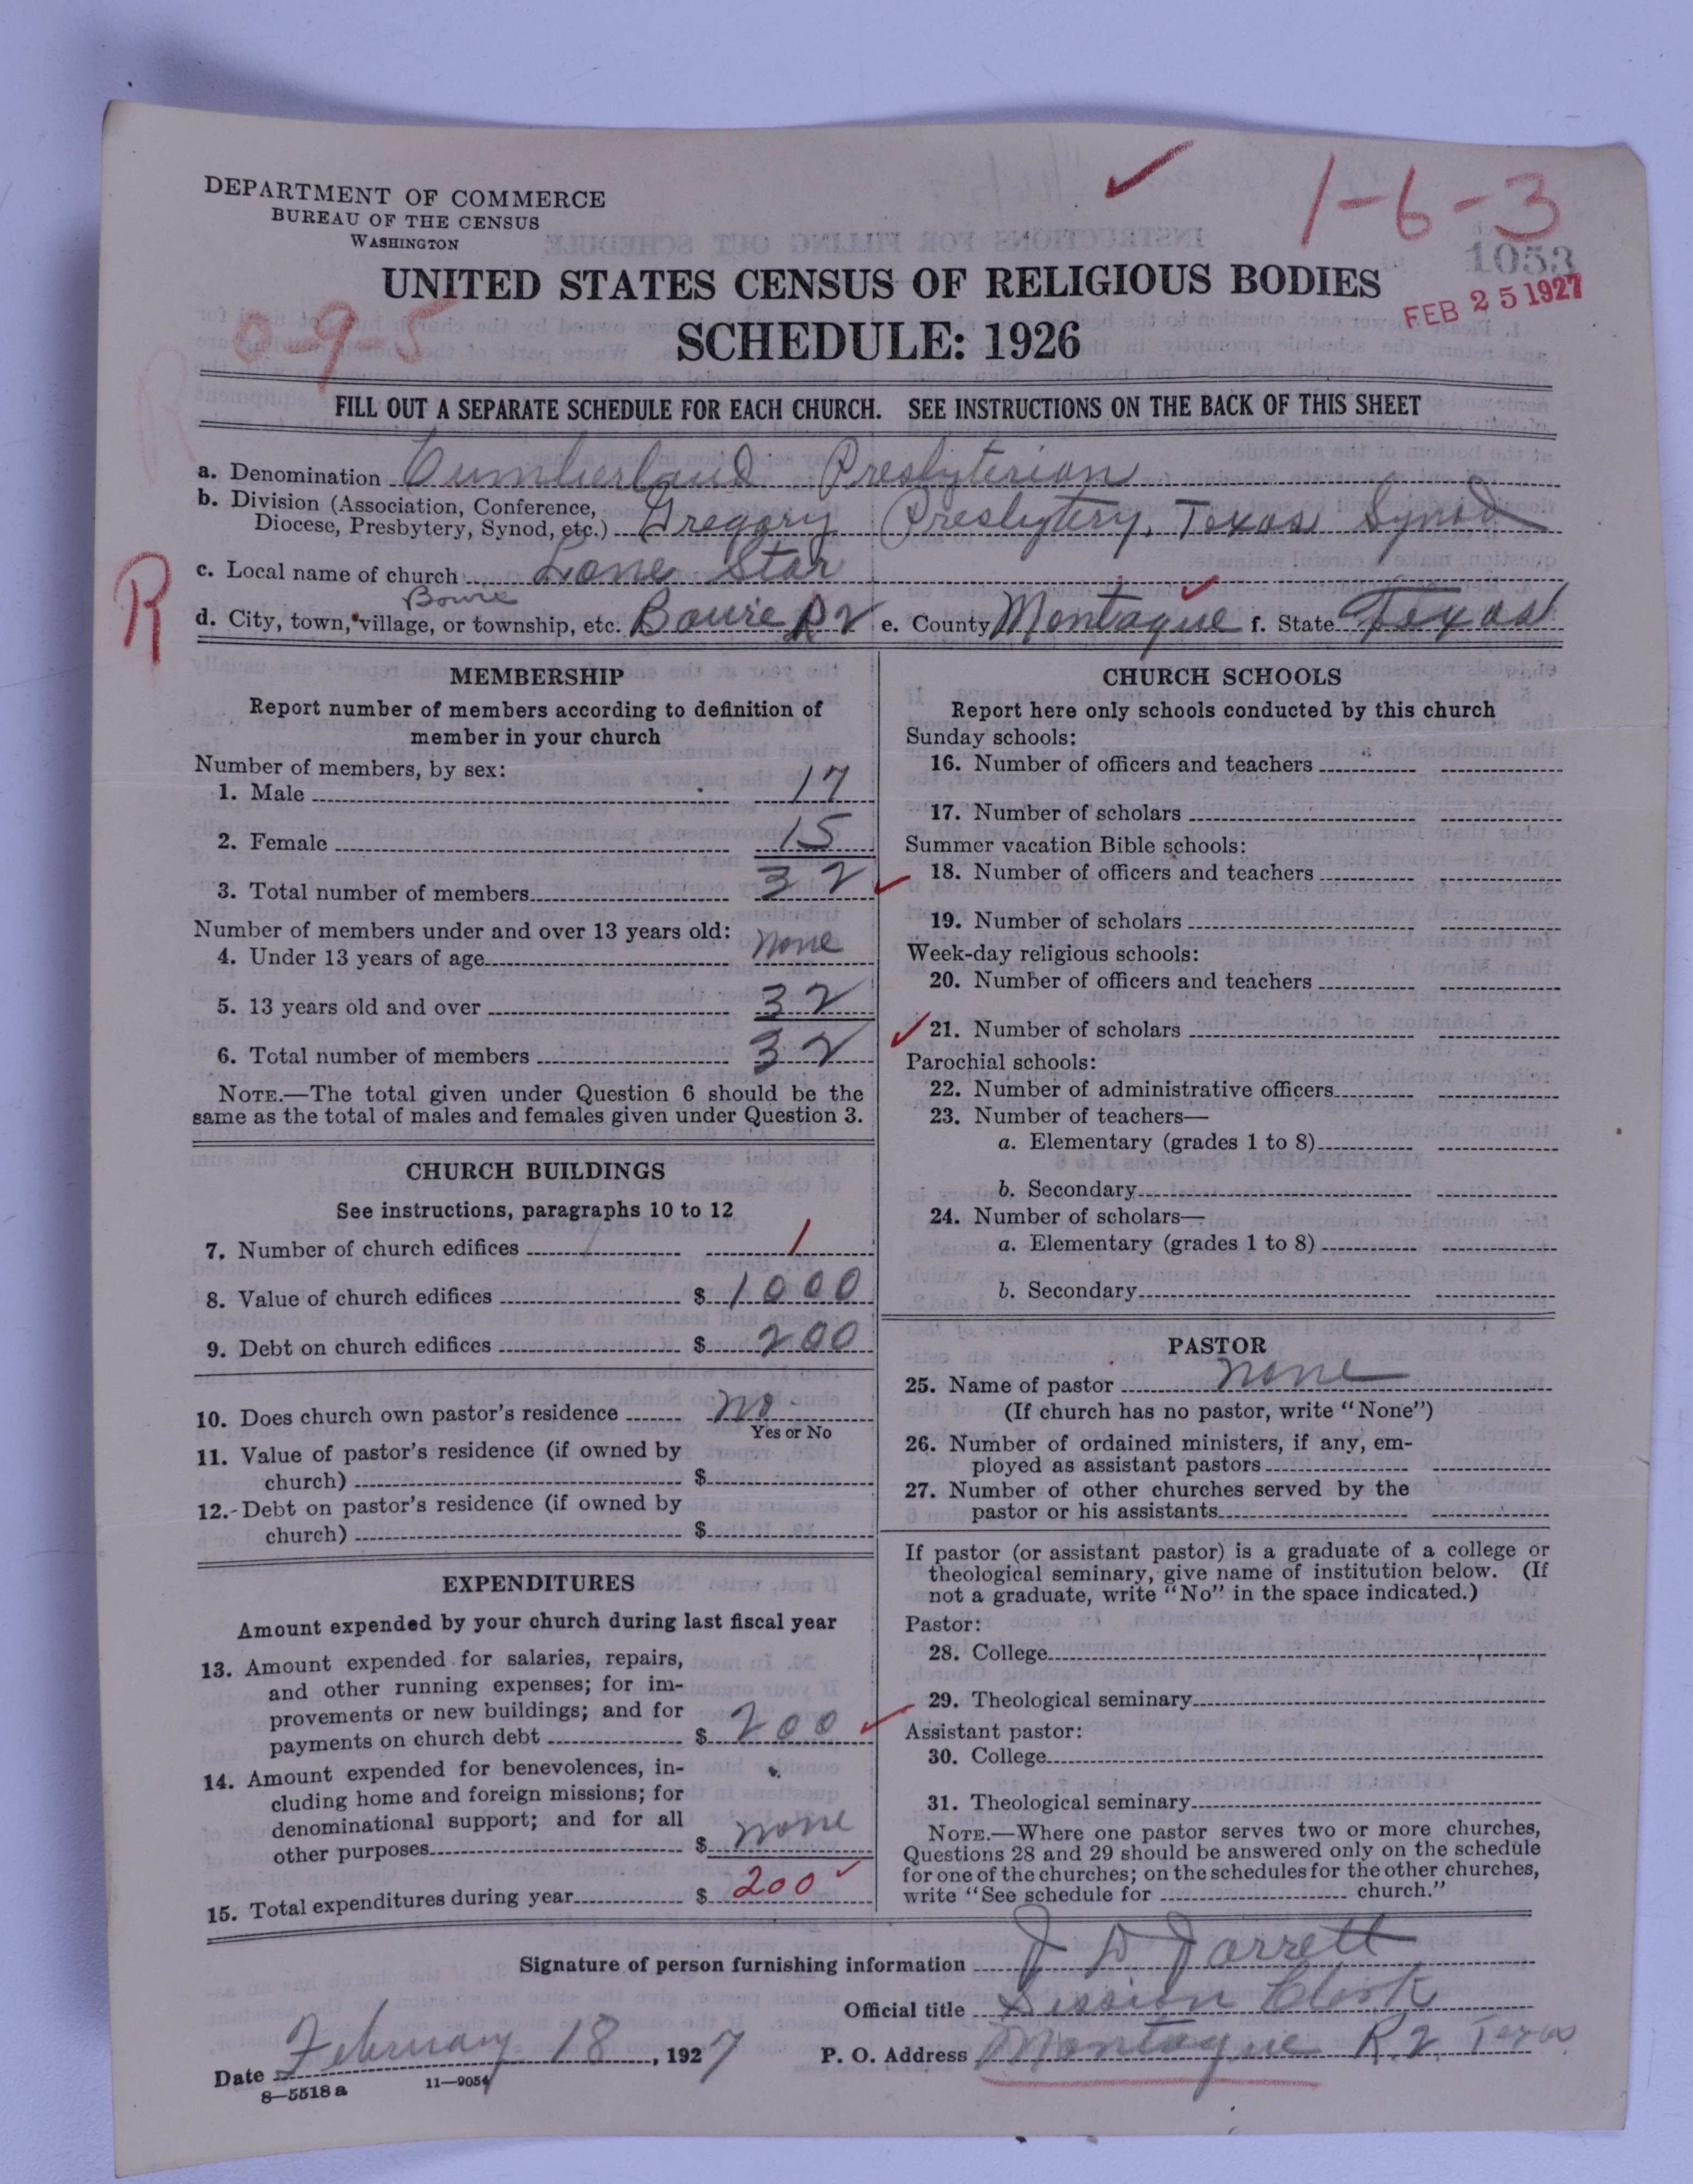 DEPARTMENT OF COMMERCE
BUREAU OF THE CENSUS
WASHINGTON
1-6-3
1053
UNITED STATES CENSUS OF RELIGIOUS BODIES
FEB 25 1927
0-9-5
SCHEDULE: 1926
R
FILL OUT A SEPARATE SCHEDULE FOR EACH CHURCH. SEE INSTRUCTIONS ON THE BACK OF THIS SHEET
a. Denomination Cumberland Presbyterian
b. Division (Association, Conference,
Diocese, Presbytery, Synod, etc.) Gregory Presbytery, Texas Synod
R
c. Local name of church Lone Star
Bowie
d. City, town, village, or township, etc. Bowie R2 e. County Montague f. State Texas
MEMBERSHIP
Report number of members according to definition of
member in your church
Number of members, by sex:
1. Male 17
2. Female 15
3. Total number of members 32
Number of members under and over 13 years old:
4. Under 13 years of age none
5. 13 years old and over 32
6. Total number of members 32
NOTE.—The total given under Question 6 should be the
same as the total of males and females given under Question 3.
CHURCH BUILDINGS
See instructions, paragraphs 10 to 12
7. Number of church edifices 1
8. Value of church edifices $ 1000
9. Debt on church edifices $ 200
10. Does church own pastor's residence No
Yes or No
11. Value of pastor's residence (if owned by
church) $
12. Debt on pastor's residence (if owned by
church) $
EXPENDITURES
Amount expended by your church during last fiscal year
13. Amount expended for salaries, repairs,
and other running expenses; for im-
provements or new buildings; and for
payments on church debt $ 200
14. Amount expended for benevolences, in-
cluding home and foreign missions; for
denominational support; and for all
other purposes $ none
15. Total expenditures during year $ 200
CHURCH SCHOOLS
Report here only schools conducted by this church
Sunday schools:
16. Number of officers and teachers
17. Number of scholars
Summer vacation Bible schools:
18. Number of officers and teachers
19. Number of scholars
Week-day religious schools:
20. Number of officers and teachers
21. Number of scholars
Parochial schools:
22. Number of administrative officers
23. Number of teachers—
a. Elementary (grades 1 to 8)
b. Secondary
24. Number of scholars—
a. Elementary (grades 1 to 8)
b. Secondary
PASTOR
25. Name of pastor none
(If church has no pastor, write "None")
26. Number of ordained ministers, if any, em-
ployed as assistant pastors
27. Number of other churches served by the
pastor or his assistants
If pastor (or assistant pastor) is a graduate of a college or
theological seminary, give name of institution below. (If
not a graduate, write "No" in the space indicated.)
Pastor:
28. College
29. Theological seminary
Assistant pastor:
30. College
31. Theological seminary
NOTE.—Where one pastor serves two or more churches,
Questions 28 and 29 should be answered only on the schedule
for one of the churches; on the schedules for the other churches,
write "See schedule for church."
Signature of person furnishing information J D Jarrett
Official title Session Clerk
Date February 18, 1927 P. O. Address Montague R. 2. Texas
8—5518 a 11—9054